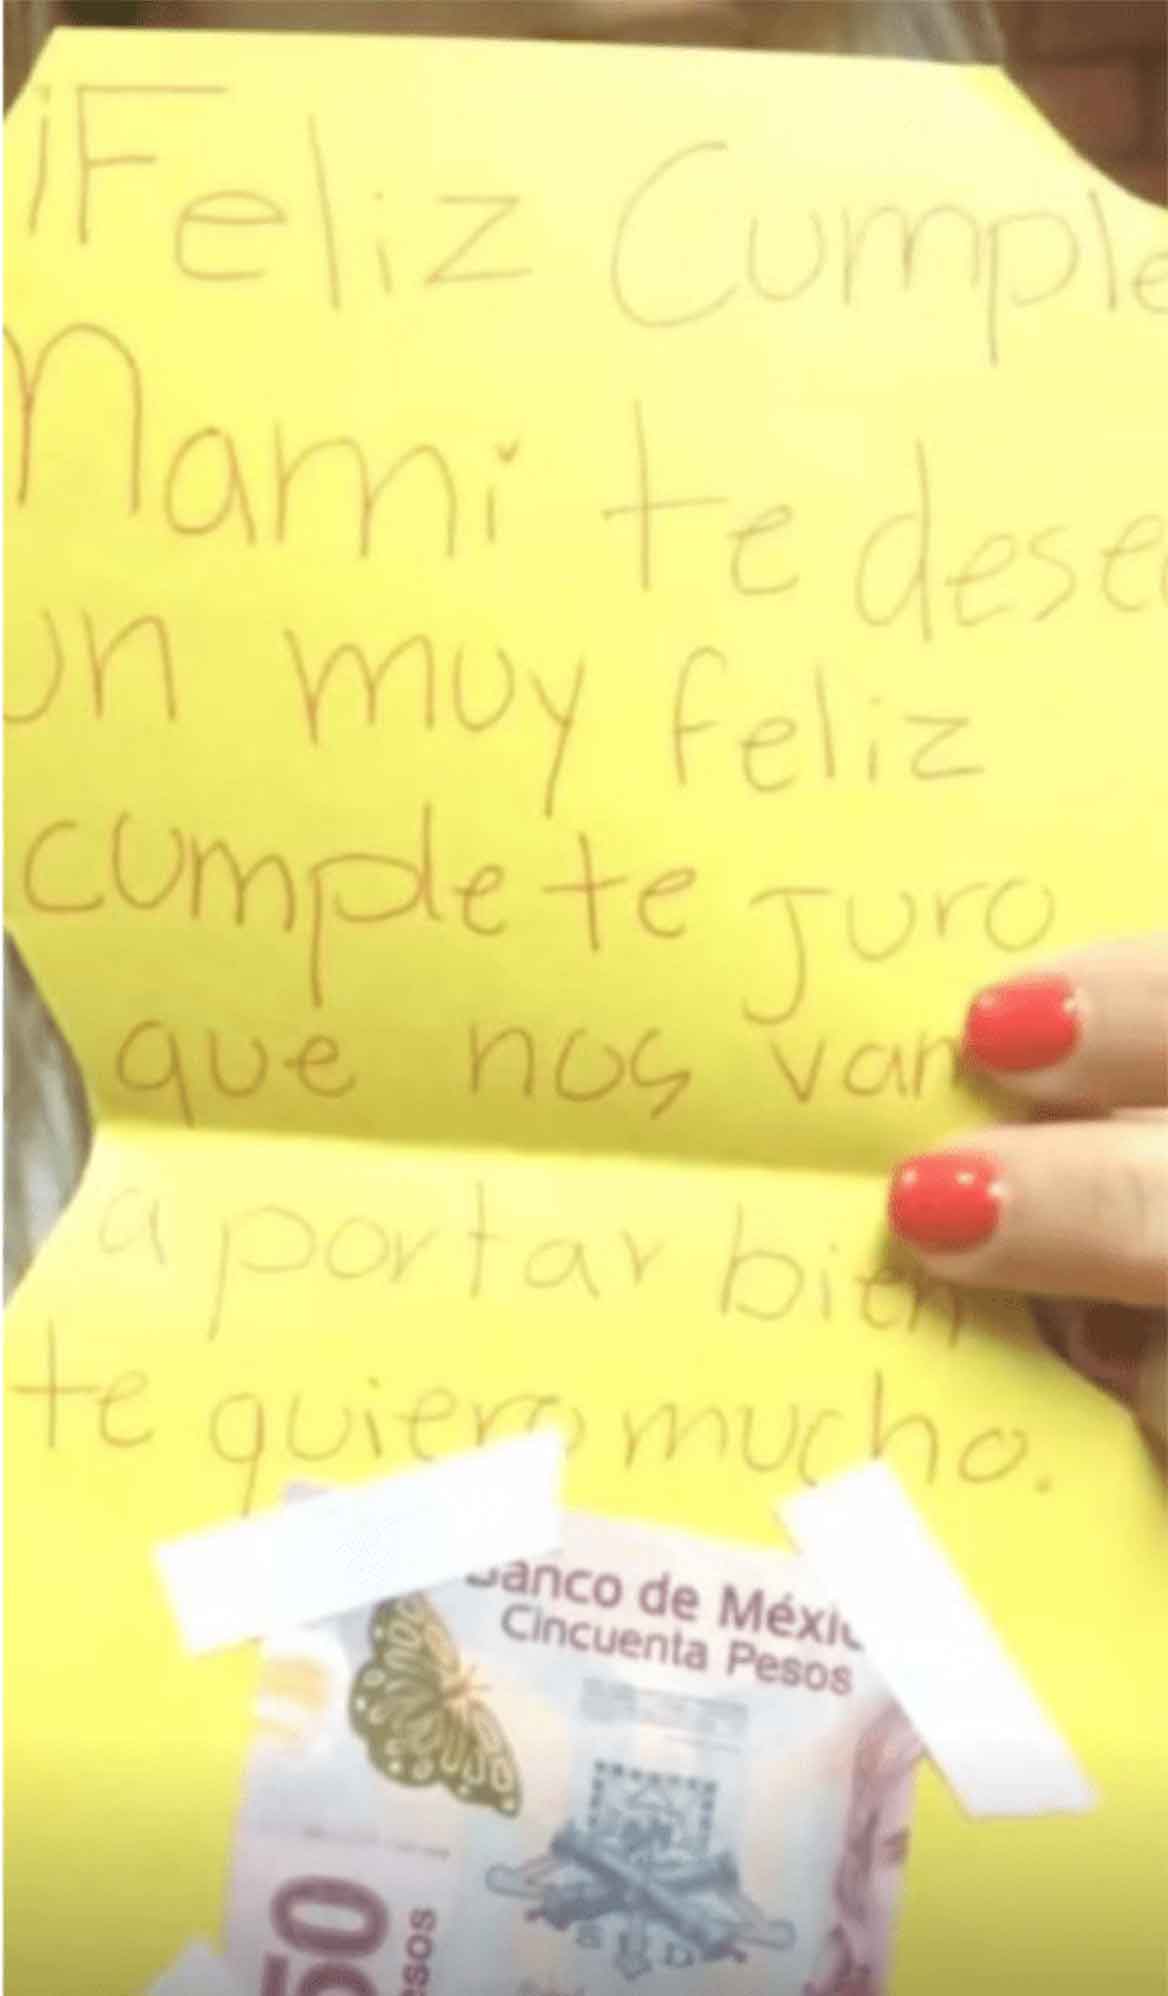 ¡Feliz Cumple
Mami te dese
un muy feliz
cumple te juro
que nos van
a portar bien
te quiero mucho.
Banco de Méxic
Cincuenta Pesos
50
esos